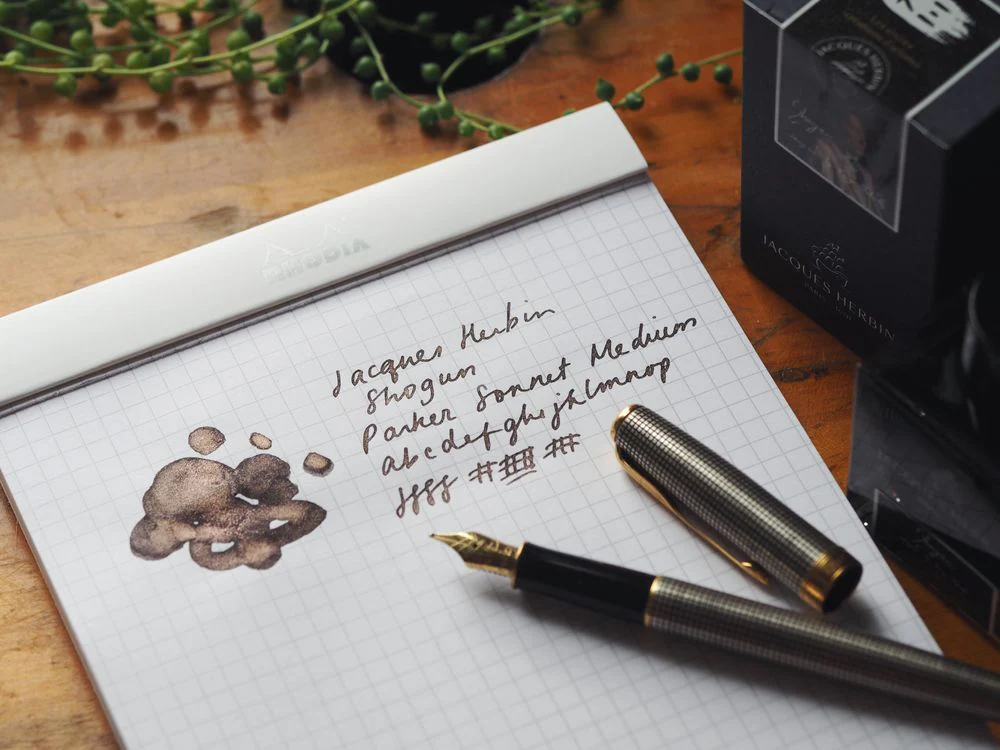 RHODIA
Jacques Herbin
Shogun
Parker Sonnet Medium
abcdefghijklmnop
JACQUES HERBIN
PARIS
JACQUES HERBIN